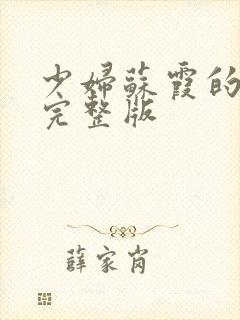 少婦蘇霞的
完整版
薛家肖